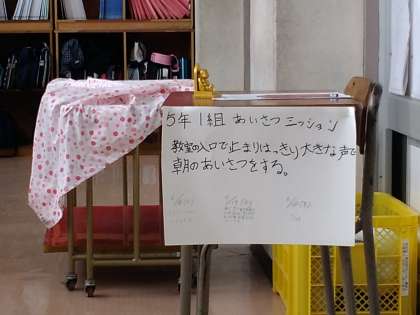 5年1組 あいさつミッション
教室の入口で止まりはっきり大きな声で
朝のあいさつをする。